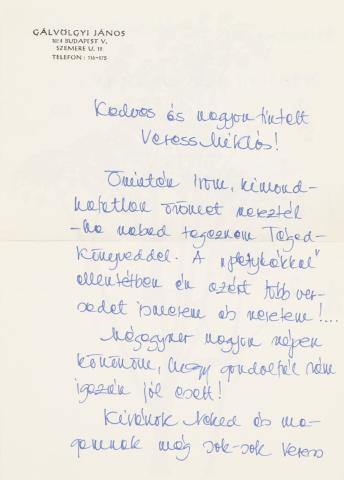 GÁLVÖLGYI JÁNOS
BUDAPEST V.,
SZEMERE U.
TELEFON:
Kedves és nagyon tisztelt
Veress Miklós!
Őszintén írom, kimond-
hatatlan örömet szereztél
-ha neked tegeznem
Könyveddel. A
ellentétben én azért több ver-
sedet ismerem és szeretem!...
Mégegyszer nagyon szépen
köszönöm, hogy gondoltál rám
igazán jól esett!
Kívánok Neked és ma-
gamnak még sok-sok Veress